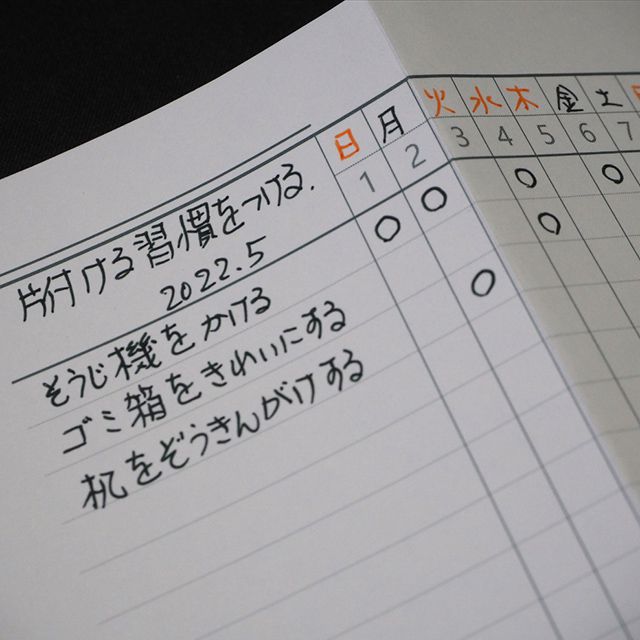 日 月 火 水 木 金 土 日
1 2 3 4 5 6 7
片付ける習慣をつける.
2022.5
そうじ機をかける
ゴミ箱をきれいにする
机をぞうきんがけする